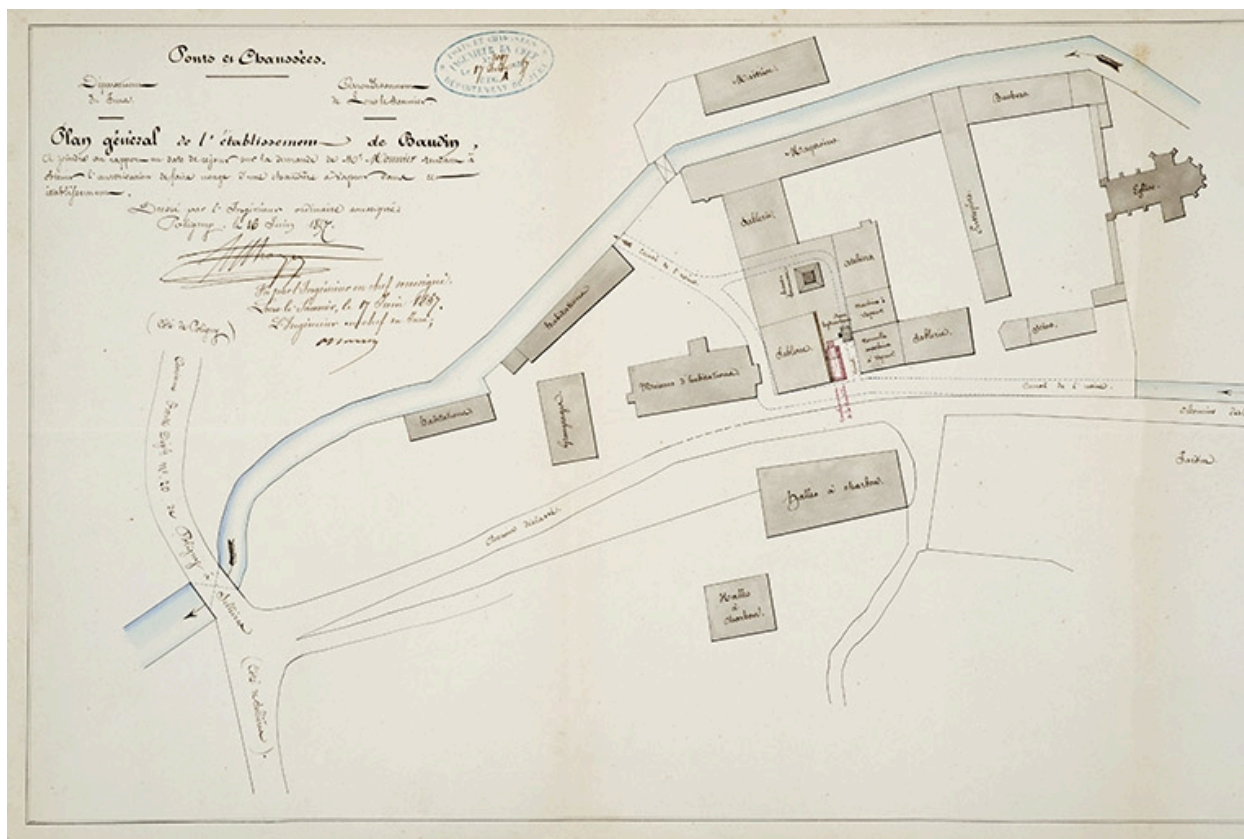 Ponts et Chaussées.
Département
du Jura
Arrondissement
de Lons-le-Saunier
PONTS ET CHAUSSÉES
INGÉNIEUR EN CHEF
le 17
DÉPARTEMENT DU JURA
Plan général de l'établissement de Baudin,
à joindre au rapport en date de ce jour sur la demande de Mr Monnier tendant à
obtenir l'autorisation de faire usage d'une chaudière à vapeur dans cet
établissement.
Dressé par l'Ingénieur ordinaire soussigné
Poligny, le 16 Juin 1857.
Vu par l'Ingénieur en chef soussigné.
Lons-le-Saunier, le 17 Juin 1857.
L'Ingénieur en chef du Jura,
(Côté de Poligny)
Chemin Gde N° 20 de Poligny à Sellières
(Côté de Sellières).
Magasins
Bureaux
Eglise.
Sablerie
Ateliers
Canal de l'usine
Machine à
vapeur
Nouvelle
machine
à vapeur
Sablerie.
Sablerie
Habitations
Habitations
Maisons d'habitations
Canal de l'usine.
Chemin
Jardin
Halles à charbon.
Chemin
Halles
à
charbon.